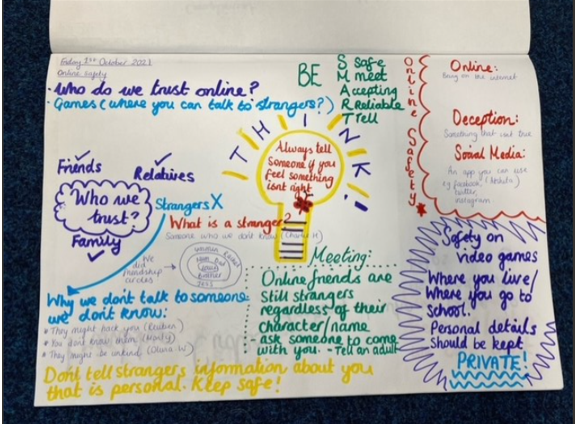 Friday 1st October 2021
Online Safety
• Who do we trust online?
• Games (where you can talk to strangers?)
BE
S Safe
M meet
Accepting
R Reliable
T Tell
Online Safety
Online:
Being on the internet
Deception:
Something that isnt true
Social Media:
An app you can use
twitter,
instagram
THINK!
Always tell
someone if you
feel something
isnt right
Friends
Relatives
Who we
trust?
Family
Strangers X
What is a stranger?
Someone who we don't know
We
did
friendship
circles
Why we dont talk to someone
we dont know:
* They might hack you (Reuben)
* You don't know them (Monty)
* They might be unkind (Olivia W)
Meeting:
Online friends are
Still strangers
regardless of their
character/name
- ask someone to come
with you. - Tell an adult
Safety on
video games
Where you live/
Where you go to
School.
Personal details
Should be kept
PRIVATE!
Dont tell strangers information about you
that is personal. Keep safe!